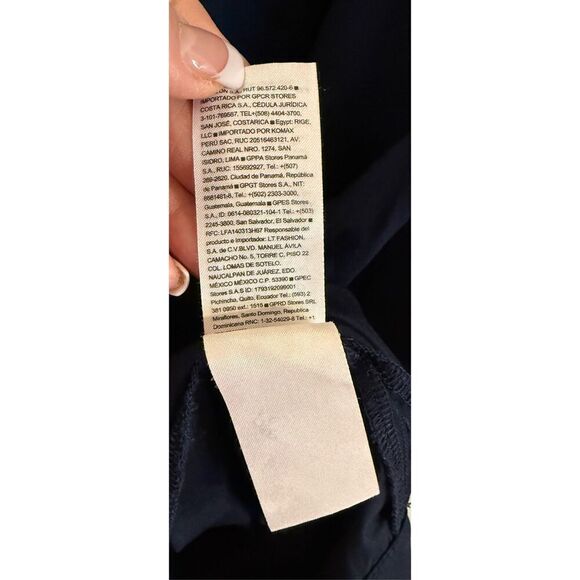 S.A., RUT 96.572.420-6 ■
IMPORTADO POR GPCR STORES
COSTA RICA S.A., CÉDULA JURÍDICA
3-101-769587, TEL+(506) 4404-3700,
SAN JOSÉ, COSTARICA ■ Egypt: RIGE,
LLC ■ IMPORTADO POR KOMAX
PERÚ SAC, RUC 20516463121, AV.
CAMINO REAL NRO. 1274, SAN
ISIDRO, LIMA ■ GPPA Stores Panamá
S.A., RUC: 155692927, Tel.: +(507)
269-2620, Ciudad de Panamá, República
de Panamá ■ GPGT Stores S.A., NIT:
8681461-8, Tel.: +(502) 2303-3000,
Guatemala, Guatemala ■ GPES Stores
S.A., ID: 0614-080321-104-1 Tel.: +(503)
2245-3800, San Salvador, El Salvador ■
RFC: LFA140313H67 Responsable del
producto e Importador: LT FASHION,
S.A. de C.V.BLVD. MANUEL ÁVILA
CAMACHO No. 5, TORRE C, PISO 22
COL. LOMAS DE SOTELO,
NAUCALPAN DE JUÁREZ, EDO.
MÉXICO MÉXICO C.P. 53390 ■ GPEC
Stores S.A.S ID: 1793192099001
Pichincha, Quito, Ecuador Tel.: (593) 2
381 0950 ext.: 1515 ■ GPRD Stores SRL
Miraflores, Santo Domingo, Republica
Dominicana RNC: 1-32-54029-8 Tel.: +1